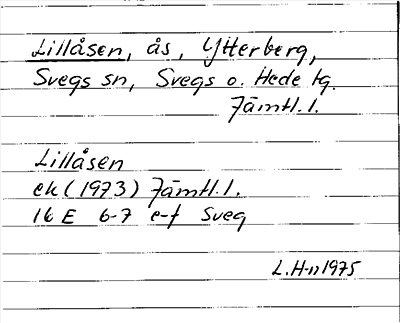 Lillåsen, ås, Ytterberg,
Svegs sn, Svegs o. Hede tg.
Jämtl. l.
Lillåsen
ek (1973) Jämtl. l.
16 E 6-7 e-f Sveg
L. H-n 1975